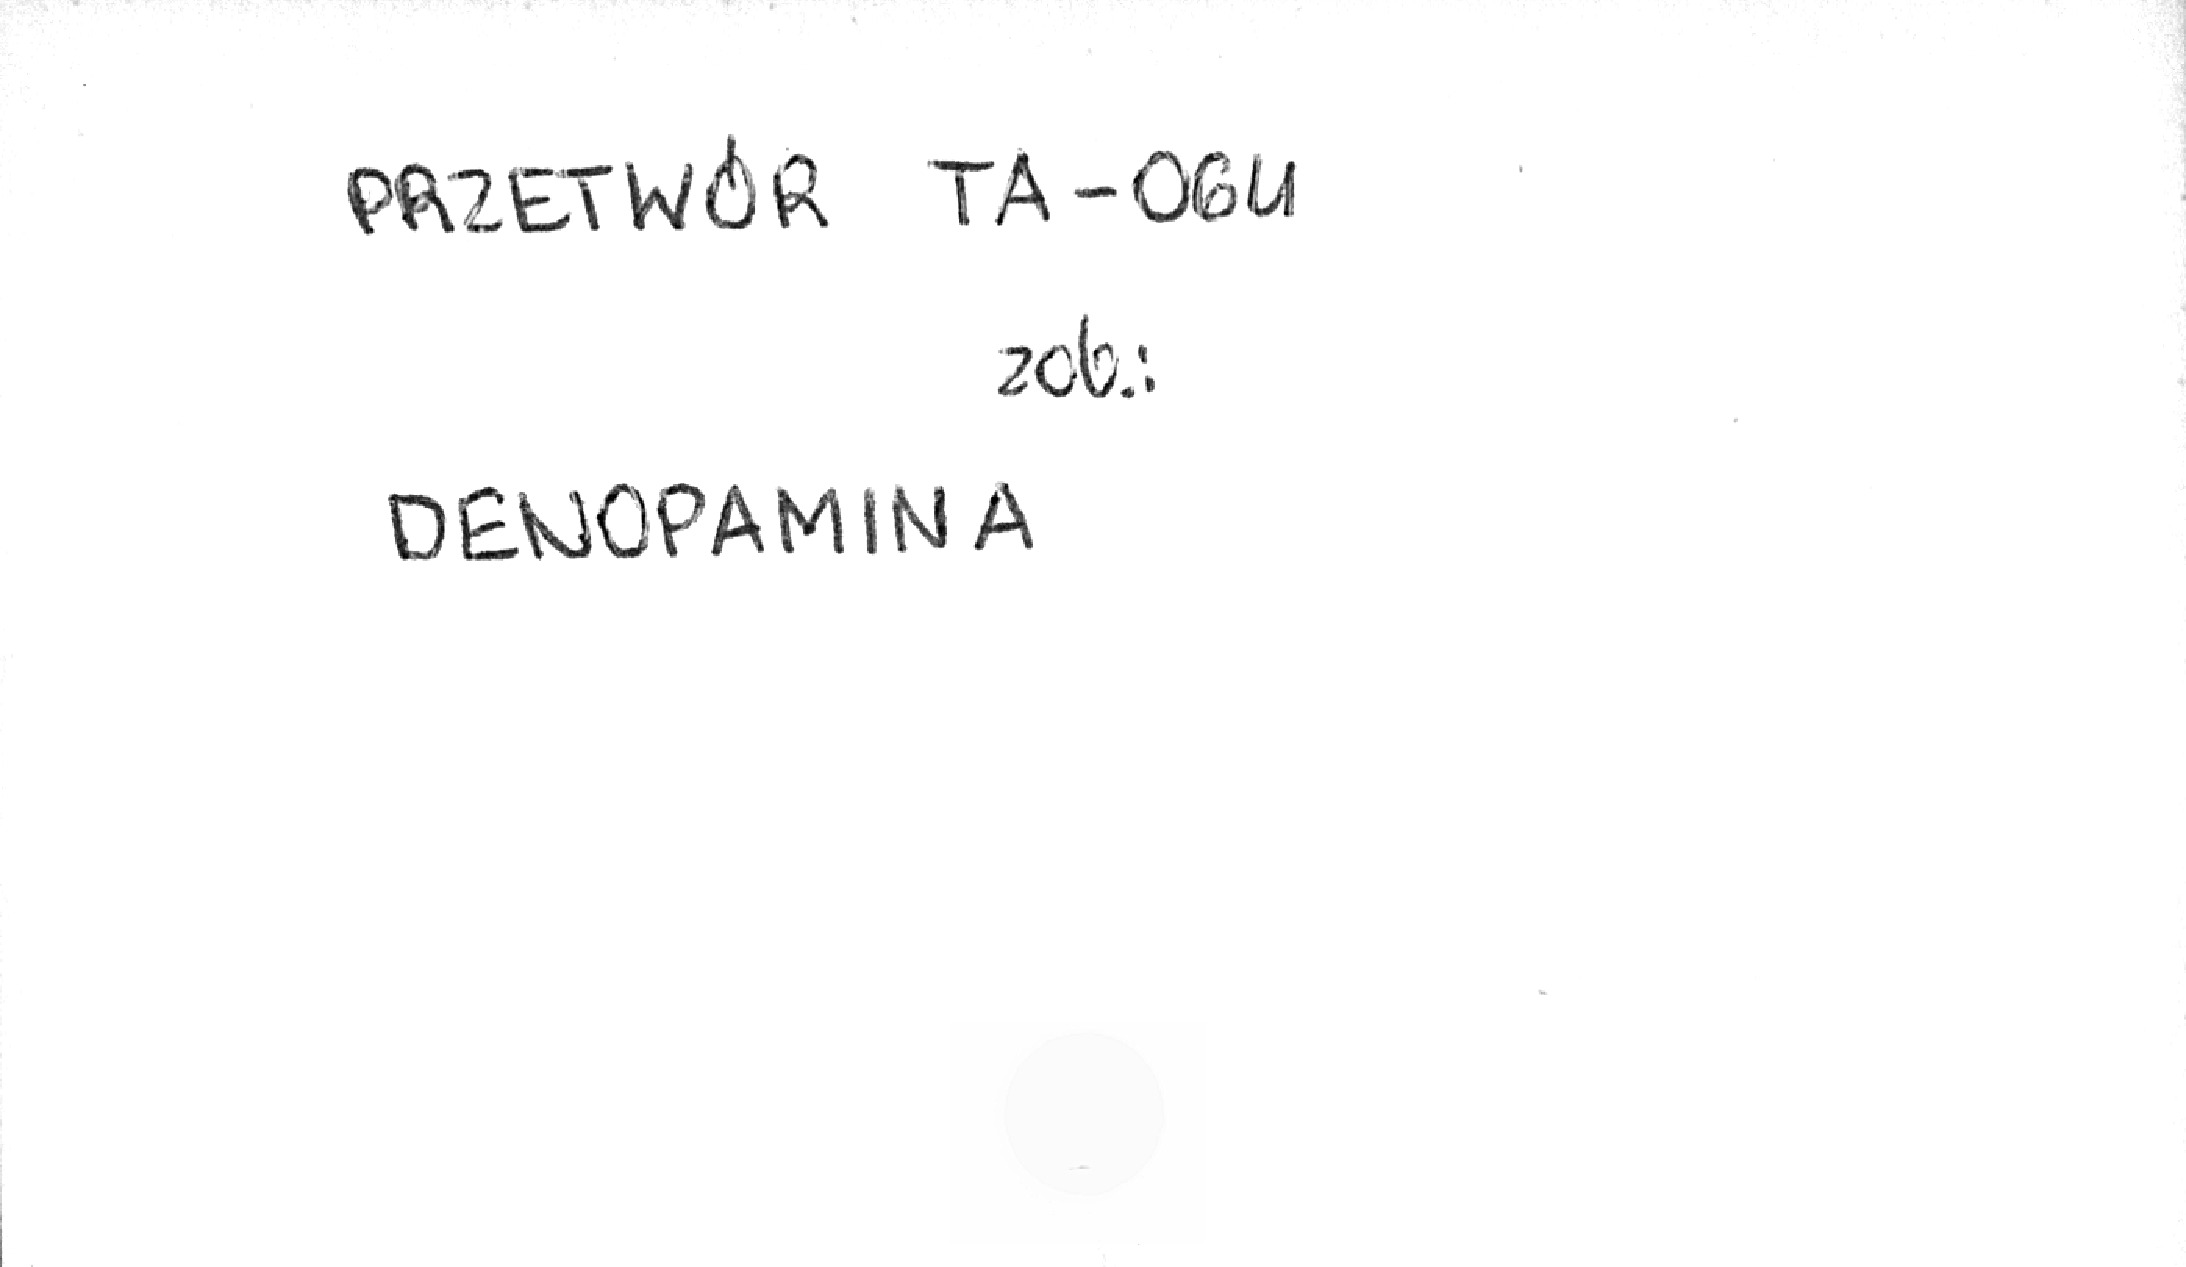 PRZETWÓR TA-064
zob.:
DENOPAMINA